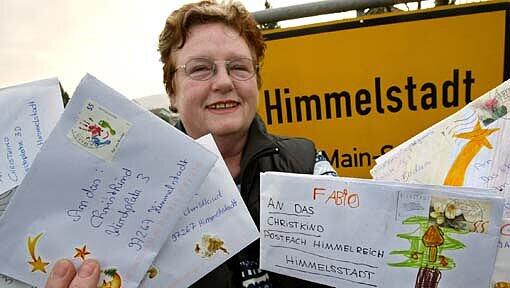 Himmelstadt
Main-S
55
An das
Christkind
Kirchplatz 3
97267 Himmelstadt
Christkind
97267 Himmelstadt
FABIO
AN DAS
CHRISTKIND
POSTFACH HIMMELREICH
HIMMELSSTADT
55
An das